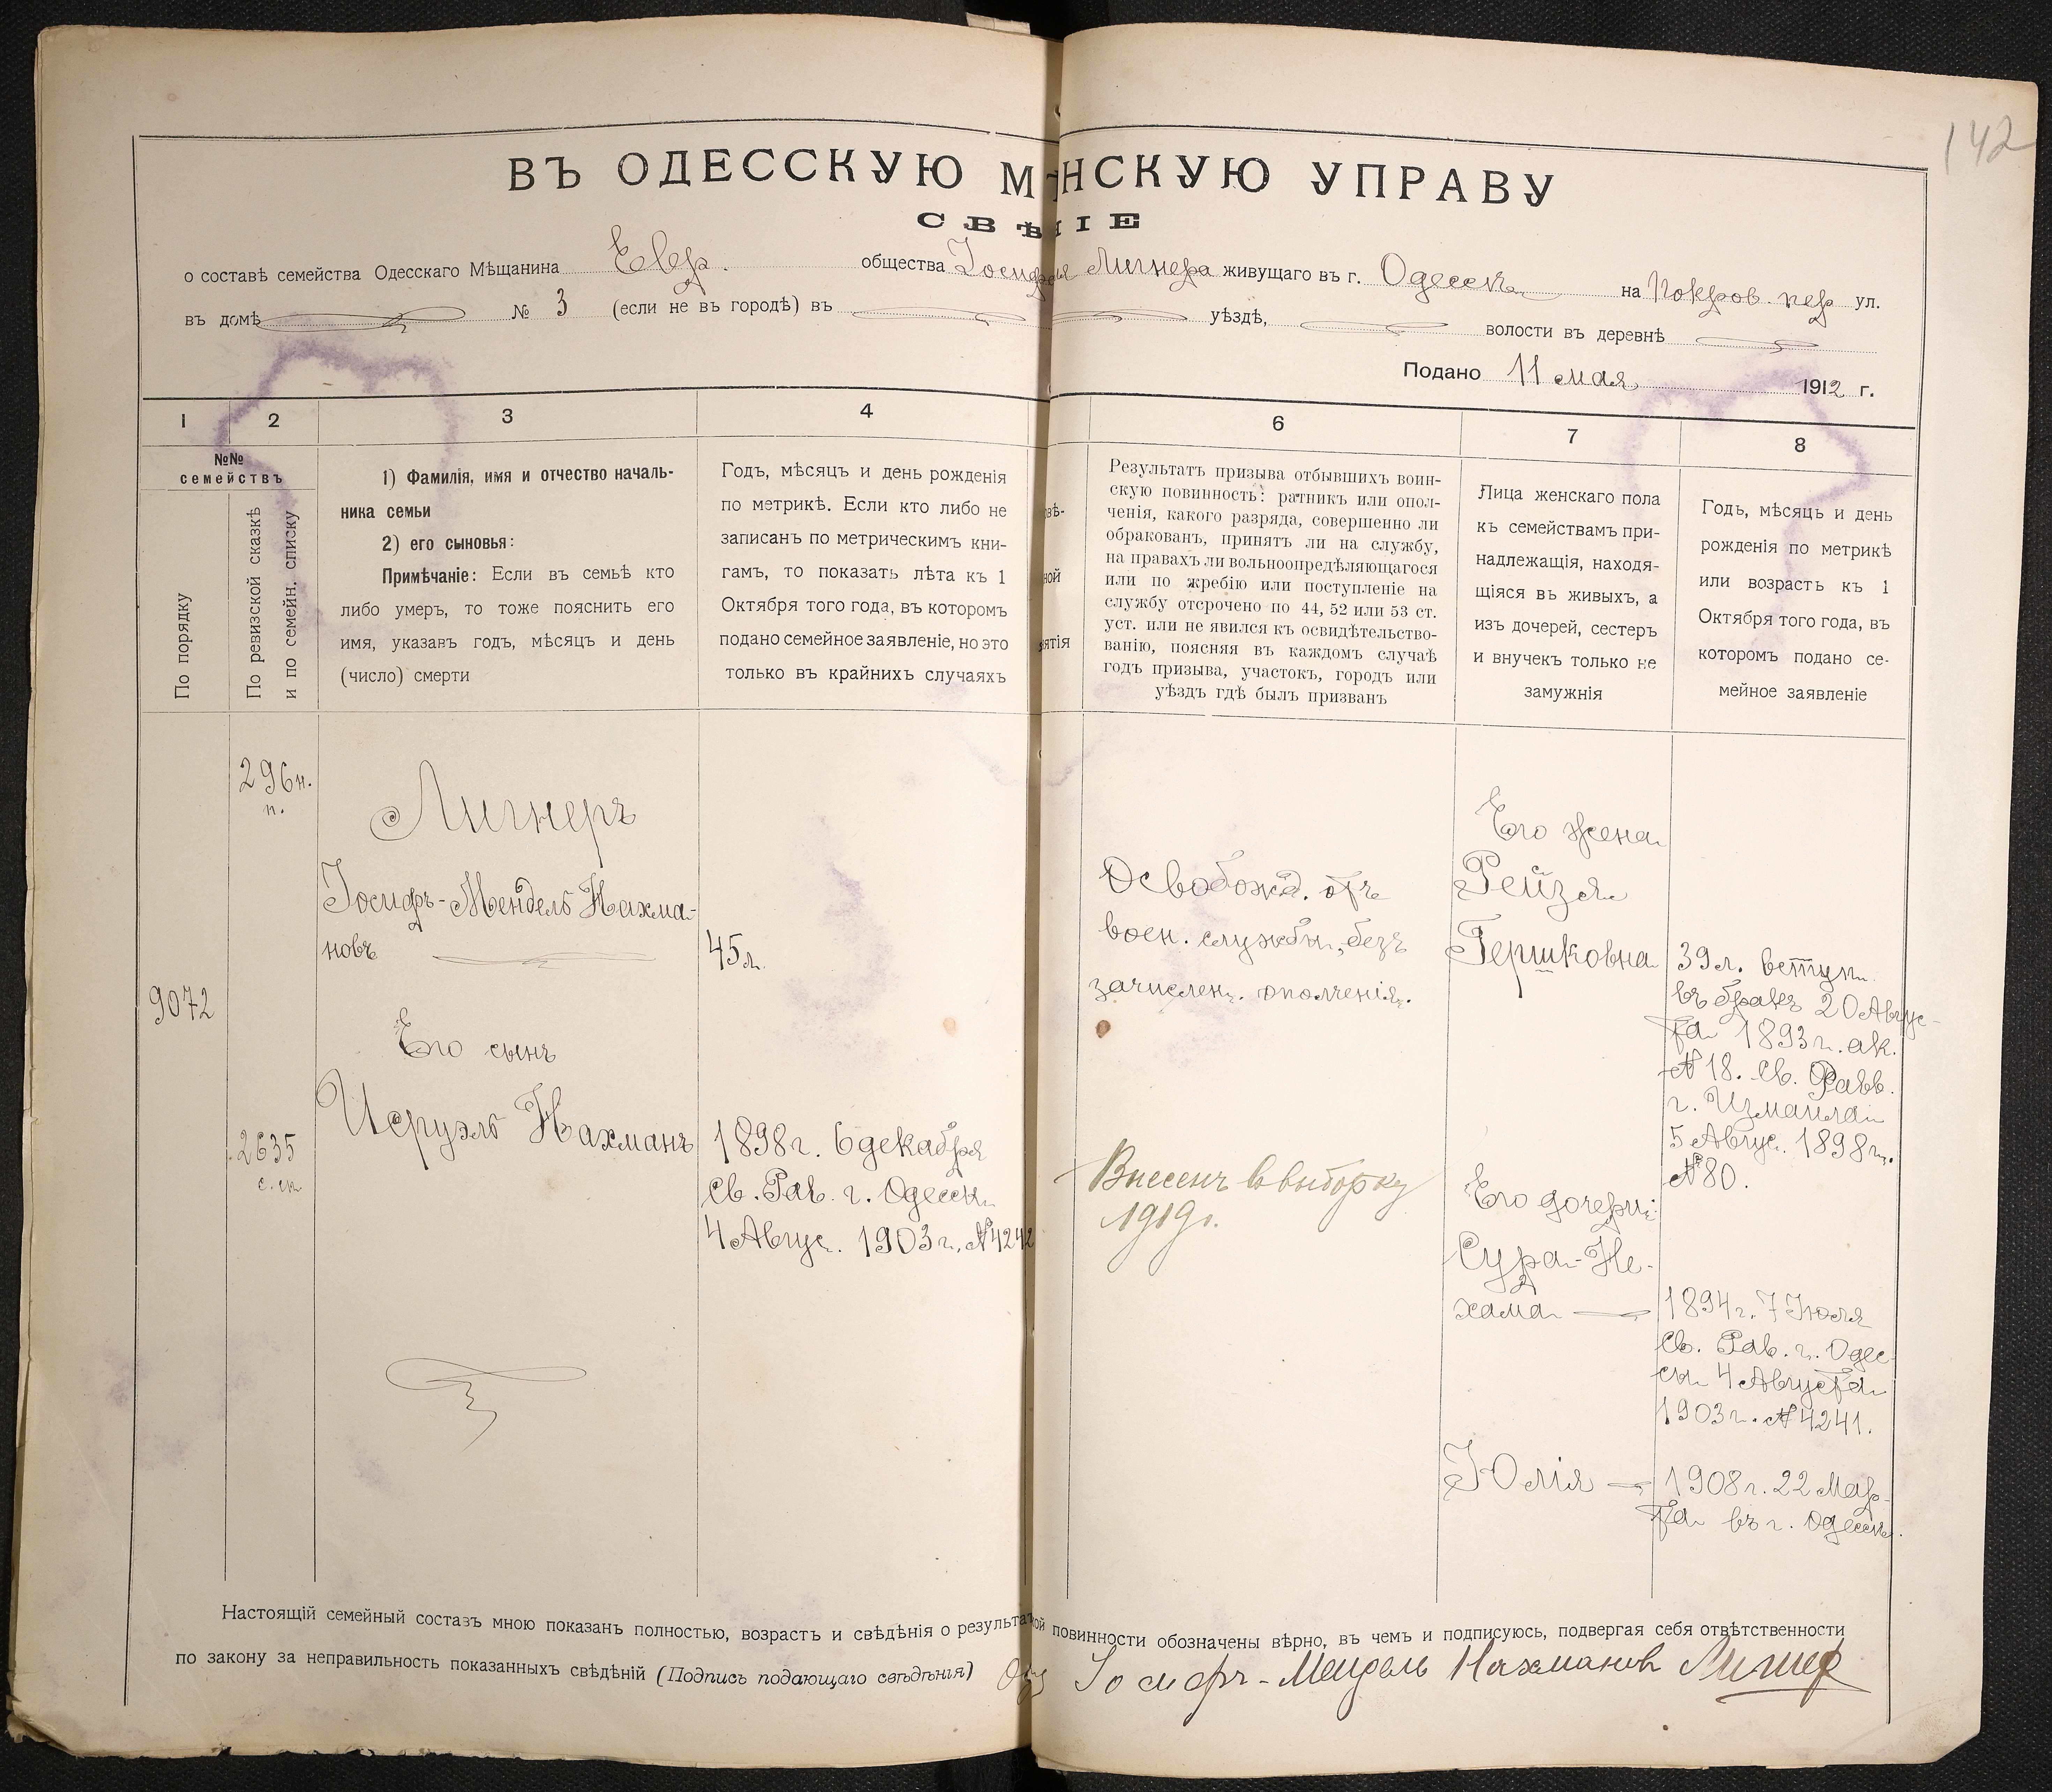 142
ВЪ ОДЕССКУЮ М НСКУЮ УПРАВУ
СВѢ НІЕ
о составѣ семейства Одесскаго Мѣщанина Евр. общества Іосифа Лигнера живущаго въ г. Одессѣ на Покров. пер ул.
въ домѣ № 3 (если не въ городѣ) въ уѣздѣ, волости въ деревнѣ
Подано 11 мая 1912 г.
1 2 3 4 6 7 8
№№
семействъ
По порядку
По ревизской сказкѣ
и по семейн. списку
1) Фамилія, имя и отчество началь-
ника семьи
2) его сыновья:
Примѣчаніе: Если въ семьѣ кто
либо умеръ, то тоже пояснить его
имя, указавъ годъ, мѣсяцъ и день
(число) смерти
Годъ, мѣсяцъ и день рожденія
по метрикѣ. Если кто либо не
записанъ по метрическимъ кни-
гамъ, то показать лѣта къ 1
Октября того года, въ которомъ
подано семейное заявленіе, но это
только въ крайнихъ случаяхъ
вѣ-
ной
ятія
Результатъ призыва отбывшихъ воин-
скую повинность: ратникъ или опол-
ченія, какого разряда, совершенно ли
обракованъ, принятъ ли на службу,
на правахъ ли вольноопредѣляющагося
или по жребію или поступленіе на
службу отсрочено по 44, 52 или 53 ст.
уст. или не явился къ освидѣтельство-
ванію, поясняя въ каждомъ случаѣ
годъ призыва, участокъ, городъ или
уѣздъ гдѣ былъ призванъ
Лица женскаго пола
къ семействамъ при-
надлежащія, находя-
щіяся въ живыхъ, а
изъ дочерей, сестеръ
и внучекъ только не
замужнія
Годъ, мѣсяцъ и день
рожденія по метрикѣ
или возрастъ къ 1
Октября того года, въ
которомъ подано се-
мейное заявленіе
9072
296 н.
п.
2635
с. сп
Лигнеръ
Іосифъ-Мендель Нахма-
новъ
Его сынъ
Исруэль Нахманъ
45 л.
1898 г. 6 декабря
св. Рав. г. Одессы
4 Авгус. 1903 г. № 4242
Освобожд. отъ
воен. службы, безъ
зачислен. ополченія.
Внесенъ в выборку
1919 г.
Его жена
Рейзя
Гершковна
Его дочери:
Сура-Не-
хама
Юлія
39 л. вступ.
въ бракъ 20 Авгус-
та 1893 г. ак.
№ 18. св. Равв.
г. Измаила
5 Авгус. 1898 г.
№ 80.
1894 г. 7 Іюля
св. Рав. г. Одес-
сы 4 Августа
1903 г. № 4241.
1908 г. 22 Мар-
та въ г. Одессѣ.
Настоящій семейный составъ мною показанъ полностью, возрастъ и свѣдѣнія о результат ой повинности обозначены вѣрно, въ чемъ и подписуюсь, подвергая себя отвѣтственности
по закону за неправильность показанныхъ свѣдѣній (Подпись подающаго свѣдѣнія) Іосифъ-Мендель Нахмановъ Лигнер